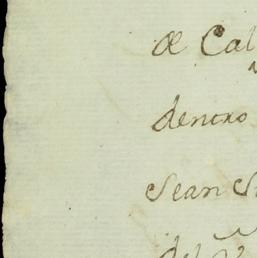 de Cal
dentro
Sean S
del V